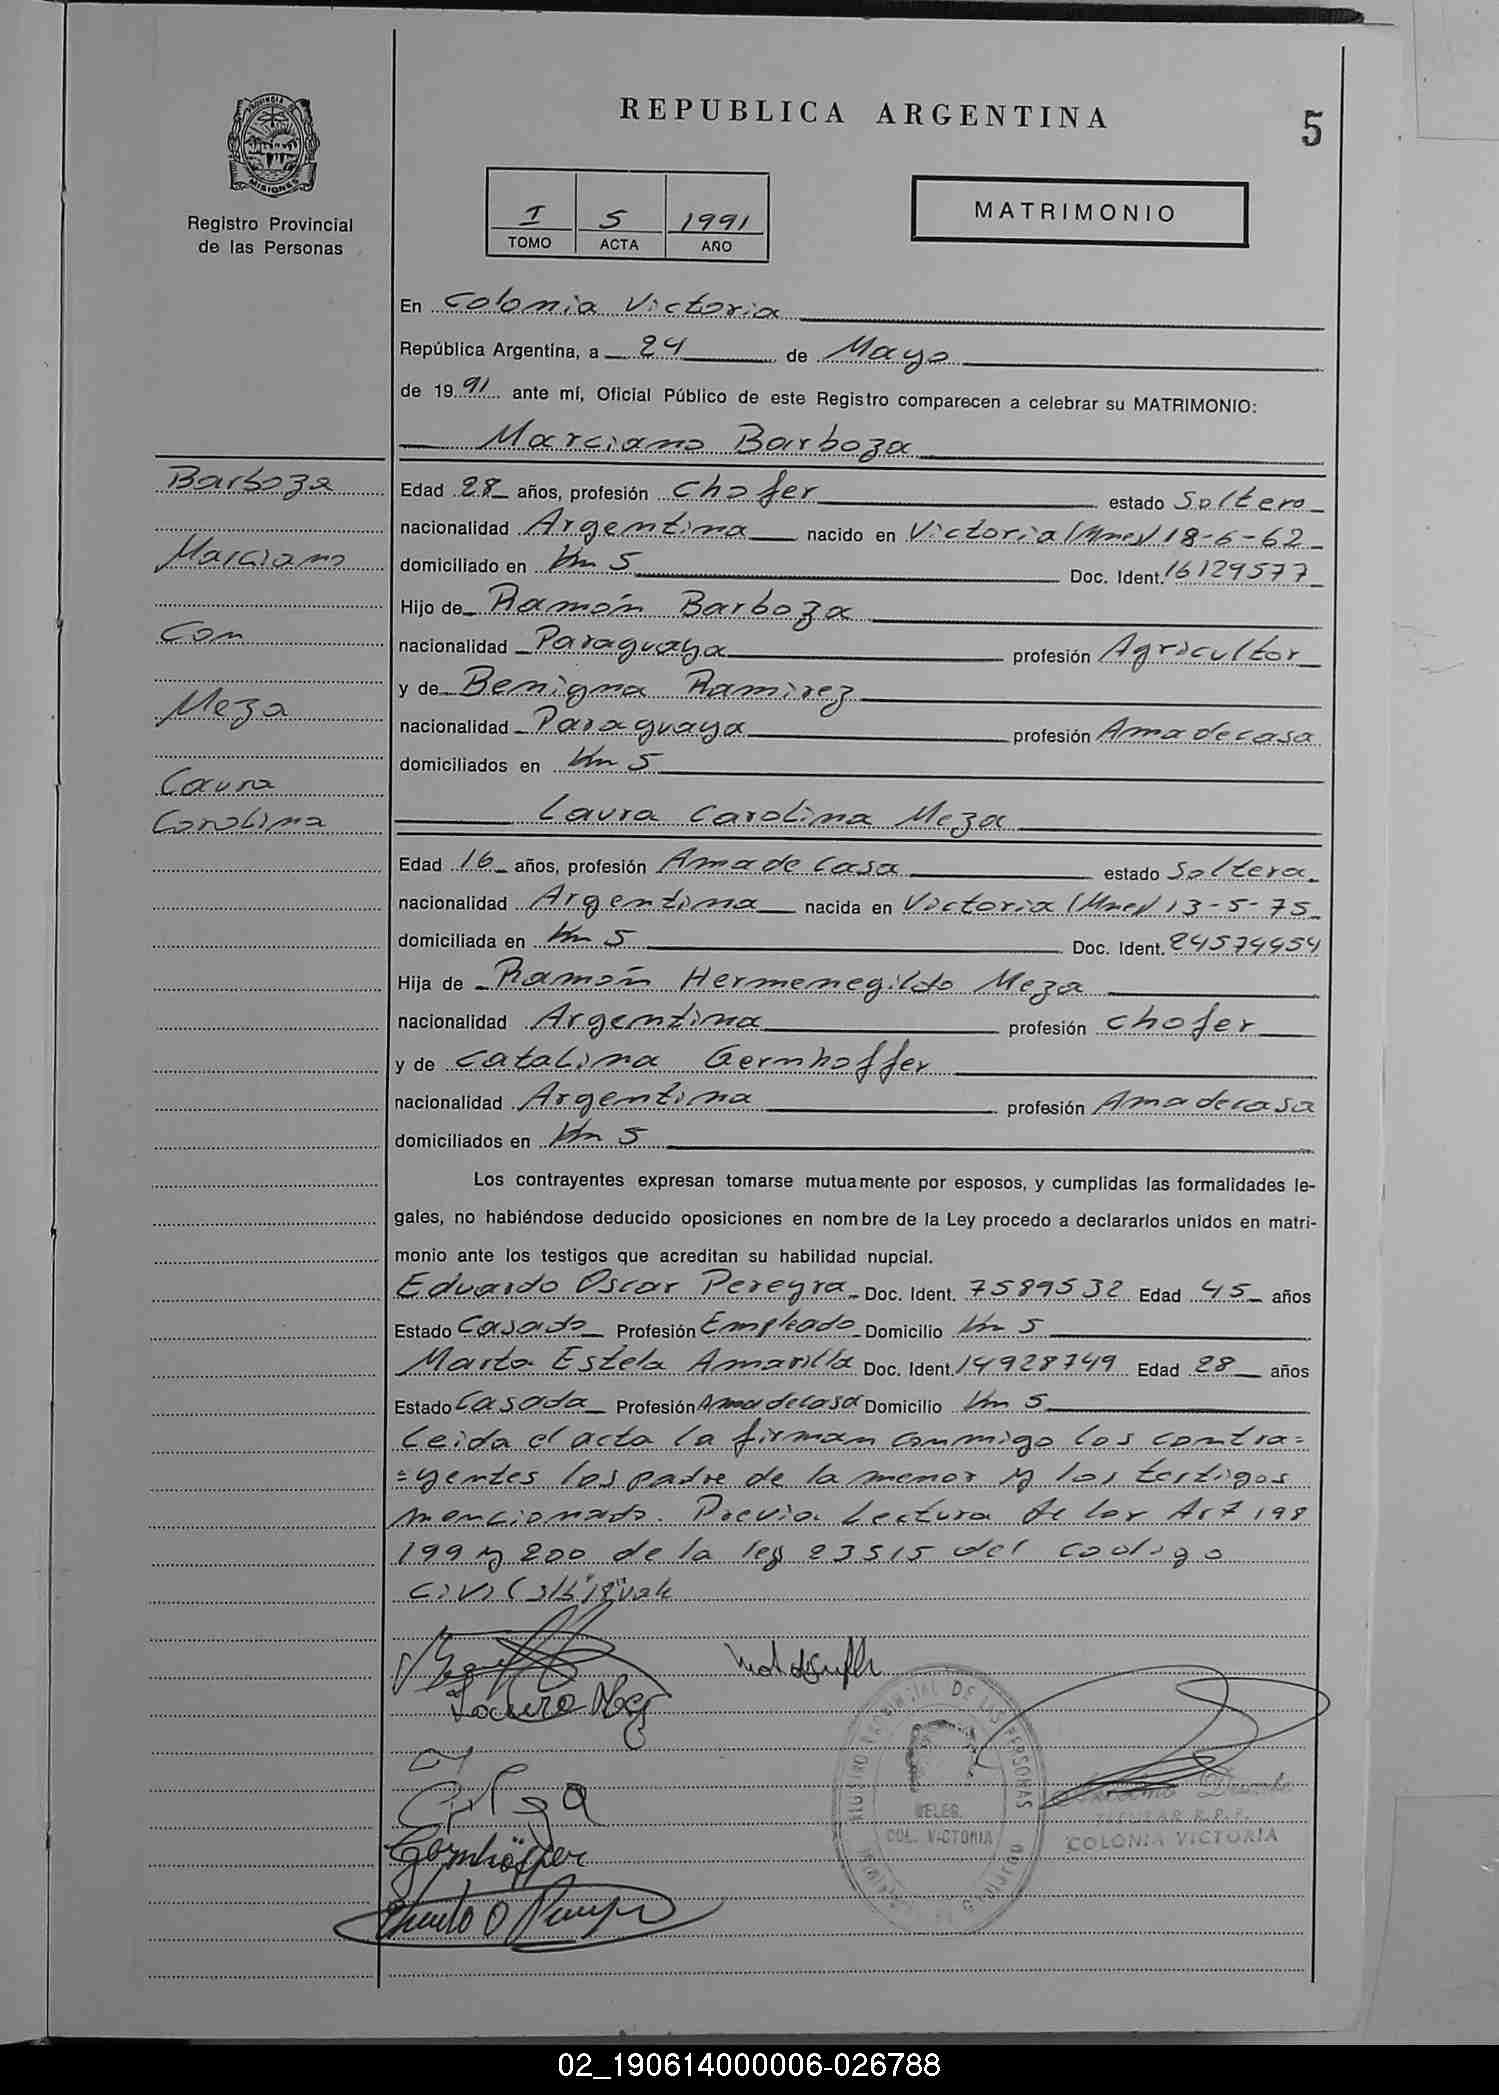 REPUBLICA ARGENTINA
5
PROVINCIA D
MISIONES
Registro Provincial
de las Personas
I 5 1991
TOMO ACTA AÑO
MATRIMONIO
En Colonia Victoria
República Argentina, a 24 de Mayo
de 1991 ante mí, Oficial Público de este Registro comparecen a celebrar su MATRIMONIO:
Marciano Barboza
Barboza
Marciano
Con
Meza
Laura
Carolina
Edad 28 años, profesión Chofer estado Soltero
nacionalidad Argentina nacido en Victoria (Mnes) 18-6-62
domiciliado en Km 5 Doc. Ident. 16129577
Hijo de Ramón Barboza
nacionalidad Paraguaya profesión Agricultor
y de Benigna Ramirez
nacionalidad Paraguaya profesión Ama de casa
domiciliados en Km 5
Laura Carolina Meza
Edad 16 años, profesión Ama de Casa estado Soltera
nacionalidad Argentina nacida en Victoria (Mnes) 13-5-75
domiciliada en Km 5 Doc. Ident. 24574454
Hija de Ramón Hermenegildo Meza
nacionalidad Argentina profesión Chofer
y de Catalina Gernhoffer
nacionalidad Argentina profesión Ama de casa
domiciliados en Km 5
Los contrayentes expresan tomarse mutuamente por esposos, y cumplidas las formalidades le-
gales, no habiéndose deducido oposiciones en nombre de la Ley procedo a declararlos unidos en matri-
monio ante los testigos que acreditan su habilidad nupcial.
Eduardo Oscar Pereyra Doc. Ident. 7589532 Edad 45 años
Estado Casado Profesión Empleado Domicilio Km 5
Marta Estela Amarilla Doc. Ident. 14928749 Edad 28 años
Estado Casada Profesión Ama de casa Domicilio Km 5
Leida el acta la firman conmigo los contra=
=yentes los padre de la menor y los testigos
mencionado. Previa Lectura de los Art 198
199 y 200 de la ley 23515 del codigo
Civil
REGISTRO PROVINCIAL DE LAS PERSONAS
DELEG.
COL. VICTORIA
TITULAR R.P.P.
COLONIA VICTORIA
Gernhöffer
02_190614000006-026788